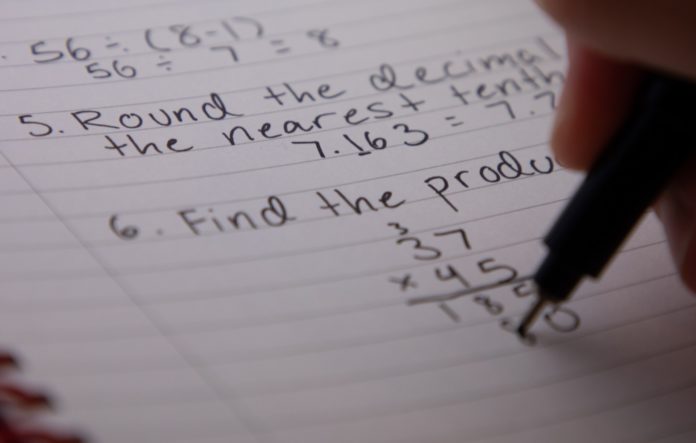 56 ÷ (8-1)
56 ÷ 7 = 8
5. Round the decimal
the nearest tenth
7.163 = 7.2
6. Find the produ
3
37
× 45
185
80